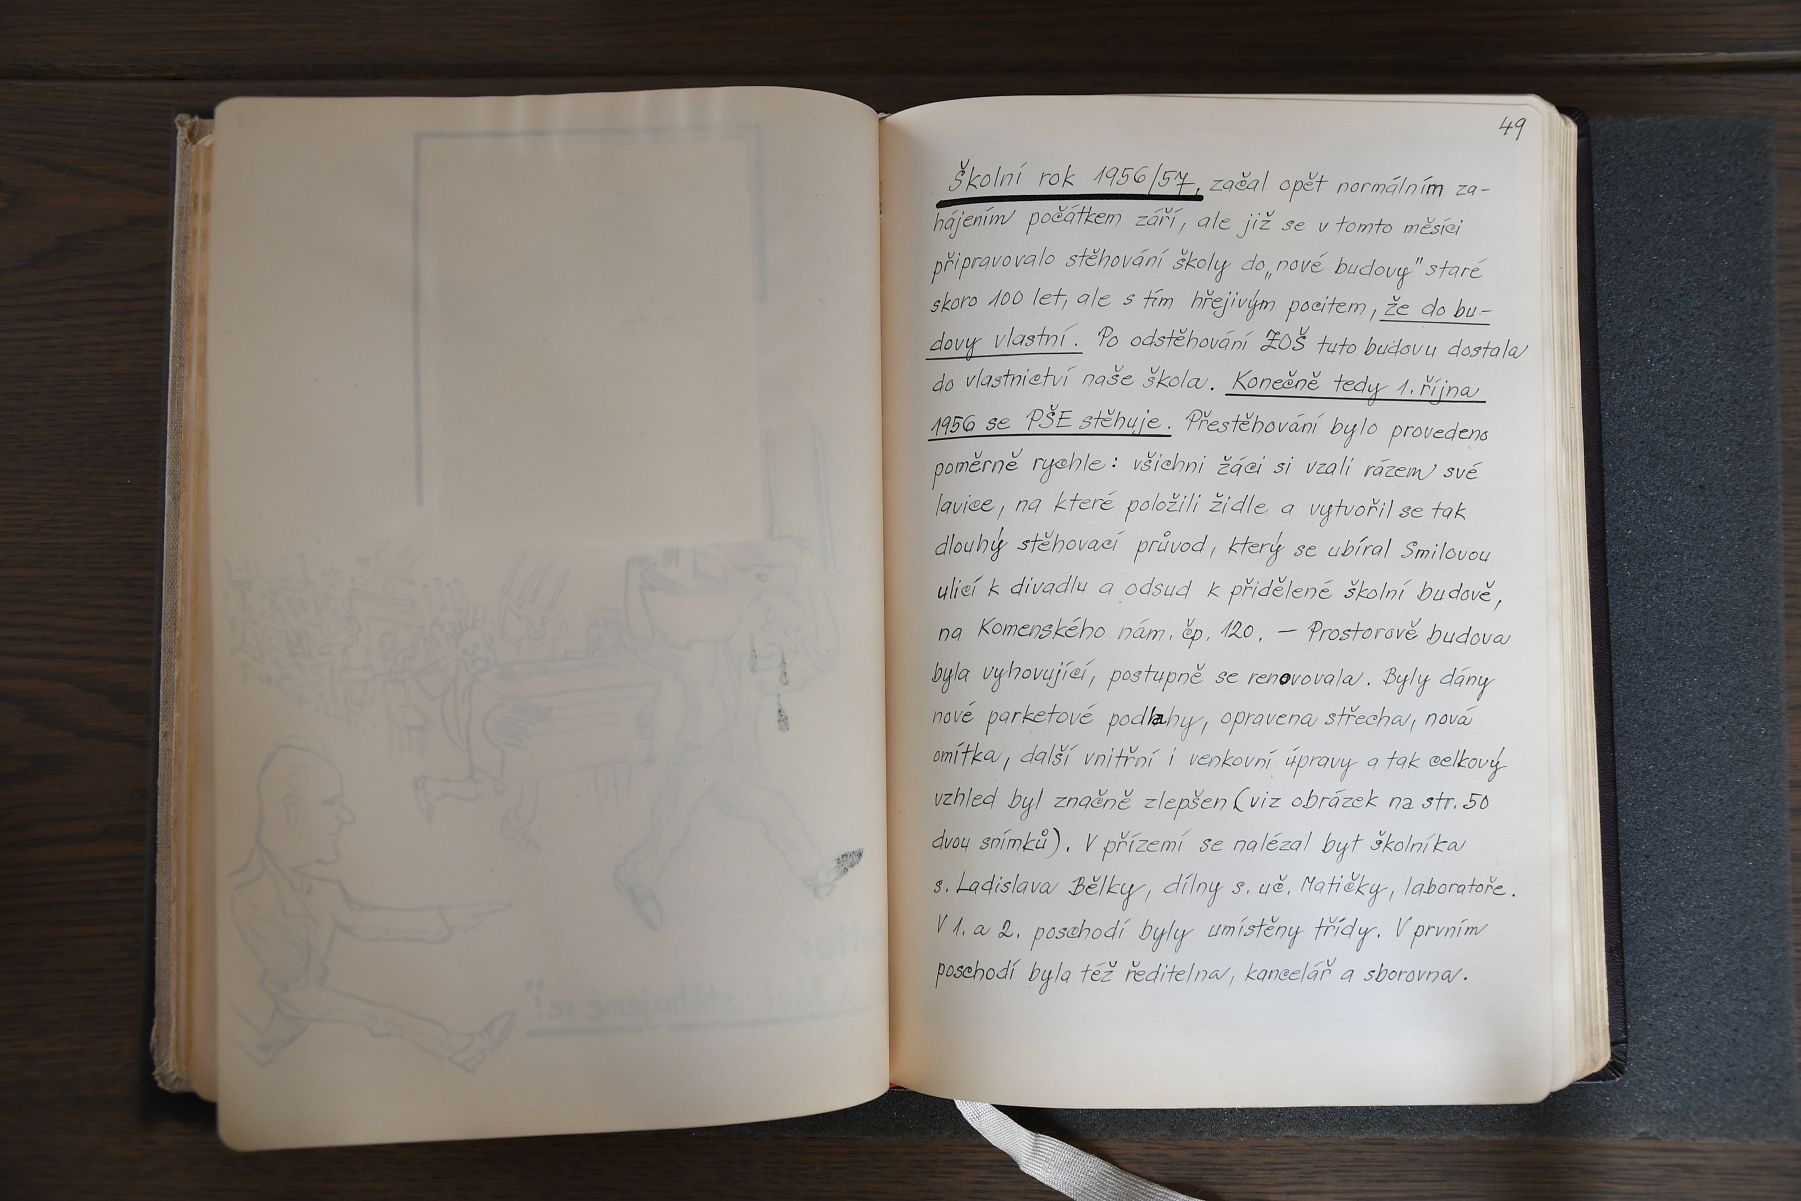 49
Školní rok 1956/57, začal opět normálním za-
hájením počátkem září, ale již se v tomto měsíci
připravovalo stěhování školy do „nové budovy" staré
skoro 100 let, ale s tím hřejivým pocitem, že do bu-
dovy vlastní. Po odstěhování ZOŠ tuto budovu dostala
do vlastnictví naše škola. Konečně tedy 1. října
1956 se PŠE stěhuje. Přestěhování bylo provedeno
poměrně rychle: všichni žáci si vzali rázem své
lavice, na které položili židle a vytvořil se tak
dlouhý stěhovací průvod, který se ubíral Smilovou
ulicí k divadlu a odsud k přidělené školní budově,
na Komenského nám. čp. 120. — Prostorově budova
byla vyhovující, postupně se renovovala. Byly dány
nové parketové podlahy, opravena střecha, nová
omítka, další vnitřní i venkovní úpravy a tak celkový
vzhled byl značně zlepšen (viz obrázek na str. 50
dvou snímků). V přízemí se nalézal byt školníka
s. Ladislava Bělky, dílny s. uč. Matičky, laboratoře.
V 1. a 2. poschodí byly umístěny třídy. V prvním
poschodí byla též ředitelna, kancelář a sborovna.
žáci stěhujeme se?"